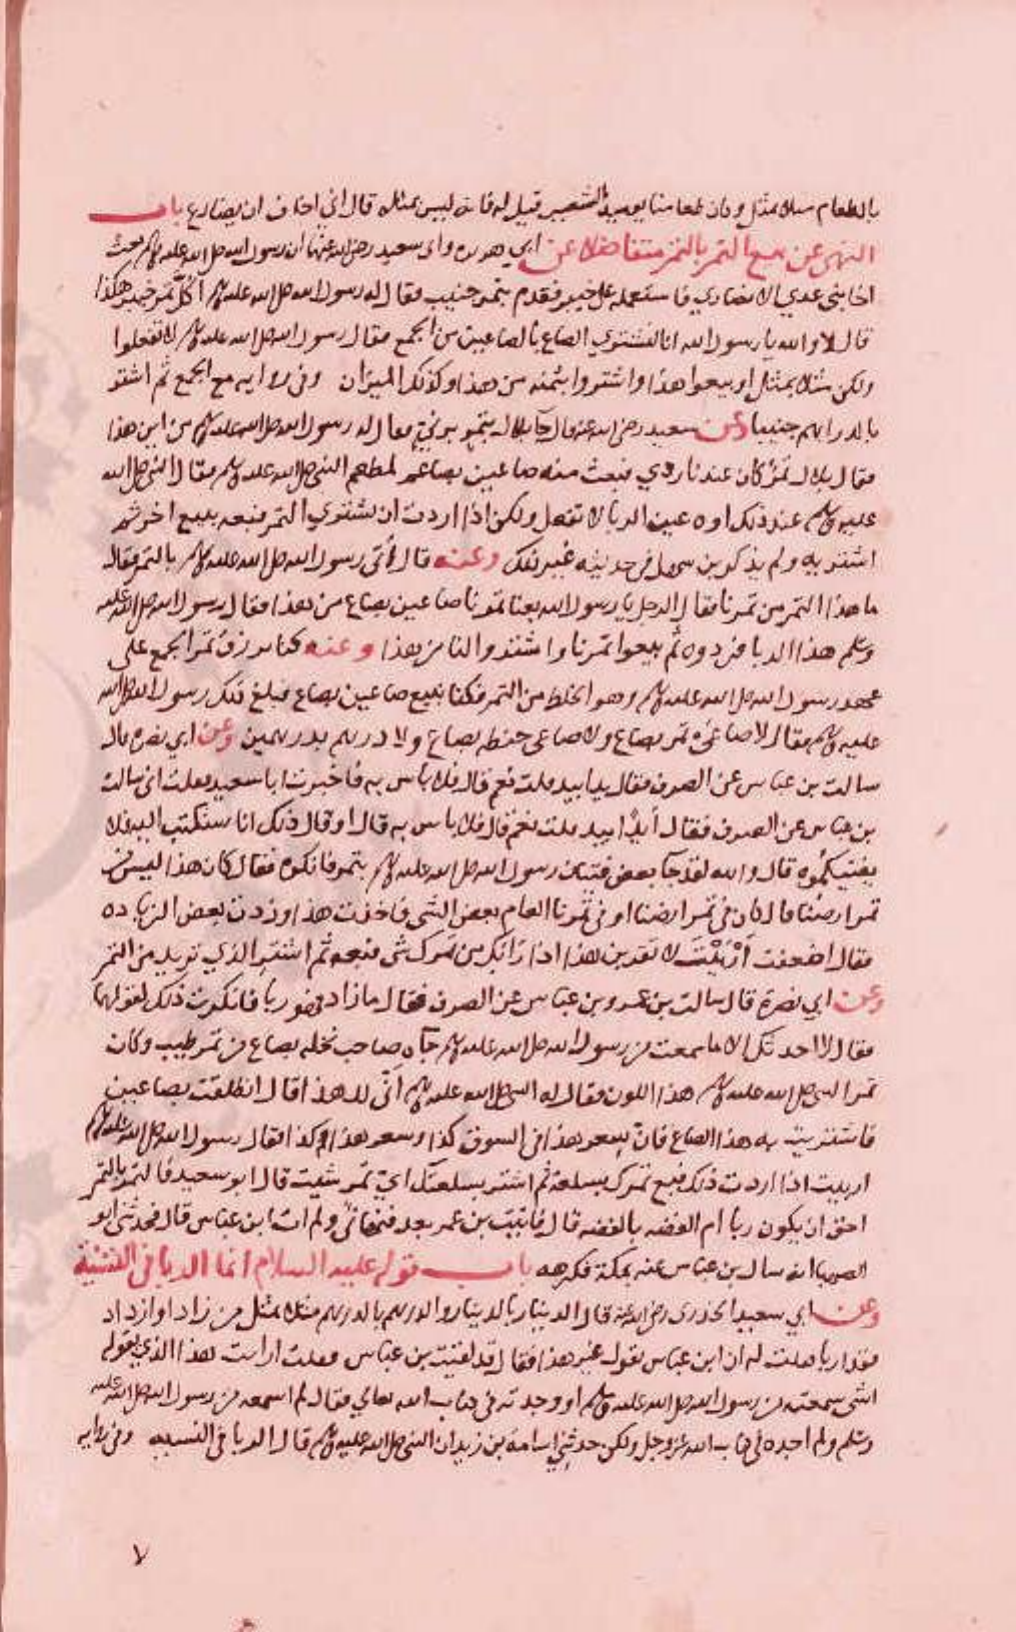 بالطعام مثلا بمثل وكان طعامنا يوميذ الشعير قيل له فانه ليس بمثله قال اني اخاف ان يضارع باب
النهي عن بيع التمر بالتمر متفاضلا عن ابي هريره وابي سعيد رضي الله عنهما ان رسول الله صلى الله عليه وسلم بعث
اخا بني عدي الانصاري فاستعمله على خيبر فقدم بتمر جنيب فقال له رسول الله صلى الله عليه وسلم اكل تمر خيبر هكذا
قال لا والله يا رسول الله انا لنشتري الصاع بالصاعين من الجمع فقال رسول الله صلى الله عليه وسلم لا تفعلوا
ولكن مثلا بمثل او بيعوا هذا واشتروا بثمنه من هذا وكذلك الميزان وفي روايه بع الجمع ثم اشتر
بالدراهم جنيبا وعن سعيد رضي الله عنه قال جا بلال بتمر برني فقال له رسول الله صلى الله عليه وسلم من اين هذا
فقال بلال تمر كان عندنا ردي فبعث منه صاعين بصاع لمطعم النبي صلى الله عليه وسلم فقال النبي صلى الله
عليه وسلم عند ذلك اوه عين الربا لا تفعل ولكن اذا اردت ان تشتري التمر فبعه ببيع اخر ثم
اشتر به ولم يذكر بن سهل في حديثه عند ذلك وعنه قال اتي رسول الله صلى الله عليه وسلم بالتمر فقال
ما هذا التمر من تمرنا فقال الرجل يا رسول الله بعنا تمرنا صاعين بصاع من هذا فقال رسول الله صلى الله عليه
وسلم هذا الربا فردوه ثم بيعوا تمرنا واشتروا لنا من هذا وعنه كنا نرزق تمر الجمع على
عهد رسول الله صلى الله عليه وسلم وهو الخلط من التمر فكنا نبيع صاعين بصاع فبلغ ذلك رسول الله صلى الله
عليه وسلم فقال لا صاعي تمر بصاع ولا صاعي حنطه بصاع ولا درهم بدرهمين وعن ابي نضره قال
سالت بن عباس عن الصرف فقال يدا بيد قلت نعم قال فلا باس به فاخبرت ابا سعيد فقلت اني سالت
بن عباس عن الصرف فقال ايدا بيد قلت نعم قال فلا باس به قال او قال ذلك انا سنكتب اليه فلا
يفتيكموه قال والله لقد جا بعض فتيان رسول الله صلى الله عليه وسلم بتمر فانكره فقال كان هذا ليس من
تمر ارضنا قال كان في تمر ارضنا او في تمرنا العام بعض الشي فاخذت هذا وزدت بعض الزياده
فقال اضعفت اربيت لا تقربن هذا اذا رابك من تمرك شي فبعه ثم اشتر الذي تريد من التمر
وعن ابي نضرة قال سالت بن عمر وبن عباس عن الصرف فقال ما زاد فهو ربا فانكرت ذلك لقولهما
فقال لا احدثك الا ما سمعت من رسول الله صلى الله عليه وسلم جاه صاحب نخله بصاع من تمر طيب وكان
تمر النبي صلى الله عليه وسلم هذا اللون فقال له النبي صلى الله عليه وسلم اني لك هذا قال انطلقت بصاعين
فاشتريت به هذا الصاع فان سعر هذا في السوق كذا وسعر هذا كذا فقال رسول الله صلى الله عليه وسلم
اربيت اذا اردت ذلك فبع تمرك بسلعة ثم اشتر بسلعتك اي تمر شيت قال ابو سعيد فالتمر بالتمر
احق ان يكون ربا ام الفضه بالفضه قال فاتيت بن عمر بعد فنهاني ولم ات ابن عباس قال فحدثني ابو
الصهبا انه سال بن عباس عنه بمكة فكرهه باب قوله عليه السلام انما الربا في النسية
وعن ابي سعيد الخدري رضي الله عنه قال الدينار بالدينار والدرهم بالدرهم مثلا بمثل من زاد او ازداد
فقد اربا فقلت له ان ابن عباس يقول غير هذا فقال قد لقيت بن عباس فقلت ارايت هذا الذي يقول
اشي سمعته من رسول الله صلى الله عليه وسلم او وجدته في كتاب الله تعالي فقال لم اسمعه من رسول الله صلى الله عليه
وسلم ولم اجده في كتاب الله عز وجل ولكن حدثني اسامة بن زيد ان النبي صلى الله عليه وسلم قال الربا في النسيه وفي روايه
٧